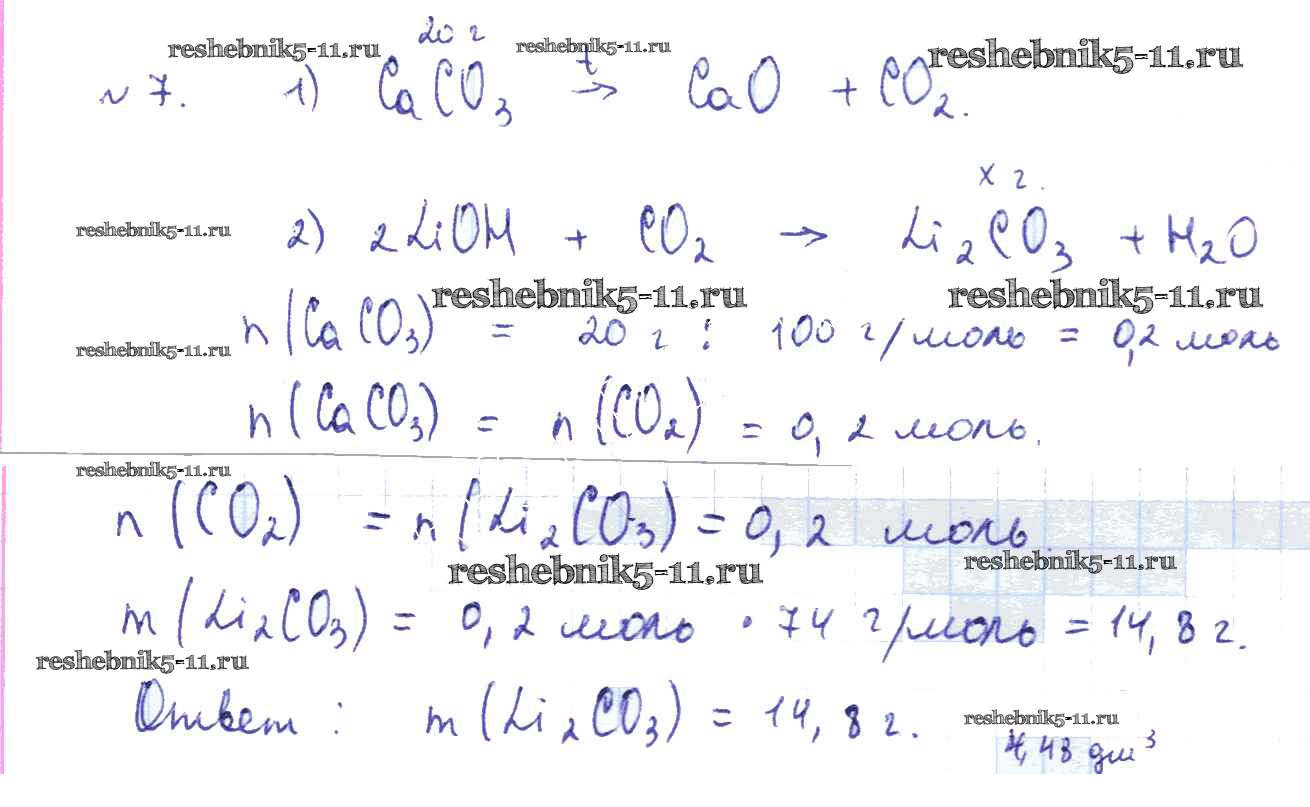 20 г
reshebnik5-11.ru reshebnik5-11.ru reshebnik5-11.ru
№ 7. 1) CaCO₃ t→ CaO + CO₂.
x г.
reshebnik5-11.ru 2) 2LiOH + CO₂ → Li₂CO₃ + H₂O
reshebnik5-11.ru reshebnik5-11.ru
n(CaCO₃) = 20 г : 100 г/моль = 0,2 моль
reshebnik5-11.ru
n(CaCO₃) = n(CO₂) = 0,2 моль.
reshebnik5-11.ru
n(CO₂) = n(Li₂CO₃) = 0,2 моль.
reshebnik5-11.ru reshebnik5-11.ru
m(Li₂CO₃) = 0,2 моль · 74 г/моль = 14,8 г.
reshebnik5-11.ru
Ответ : m(Li₂CO₃) = 14,8 г.
reshebnik5-11.ru
4,48 дм³